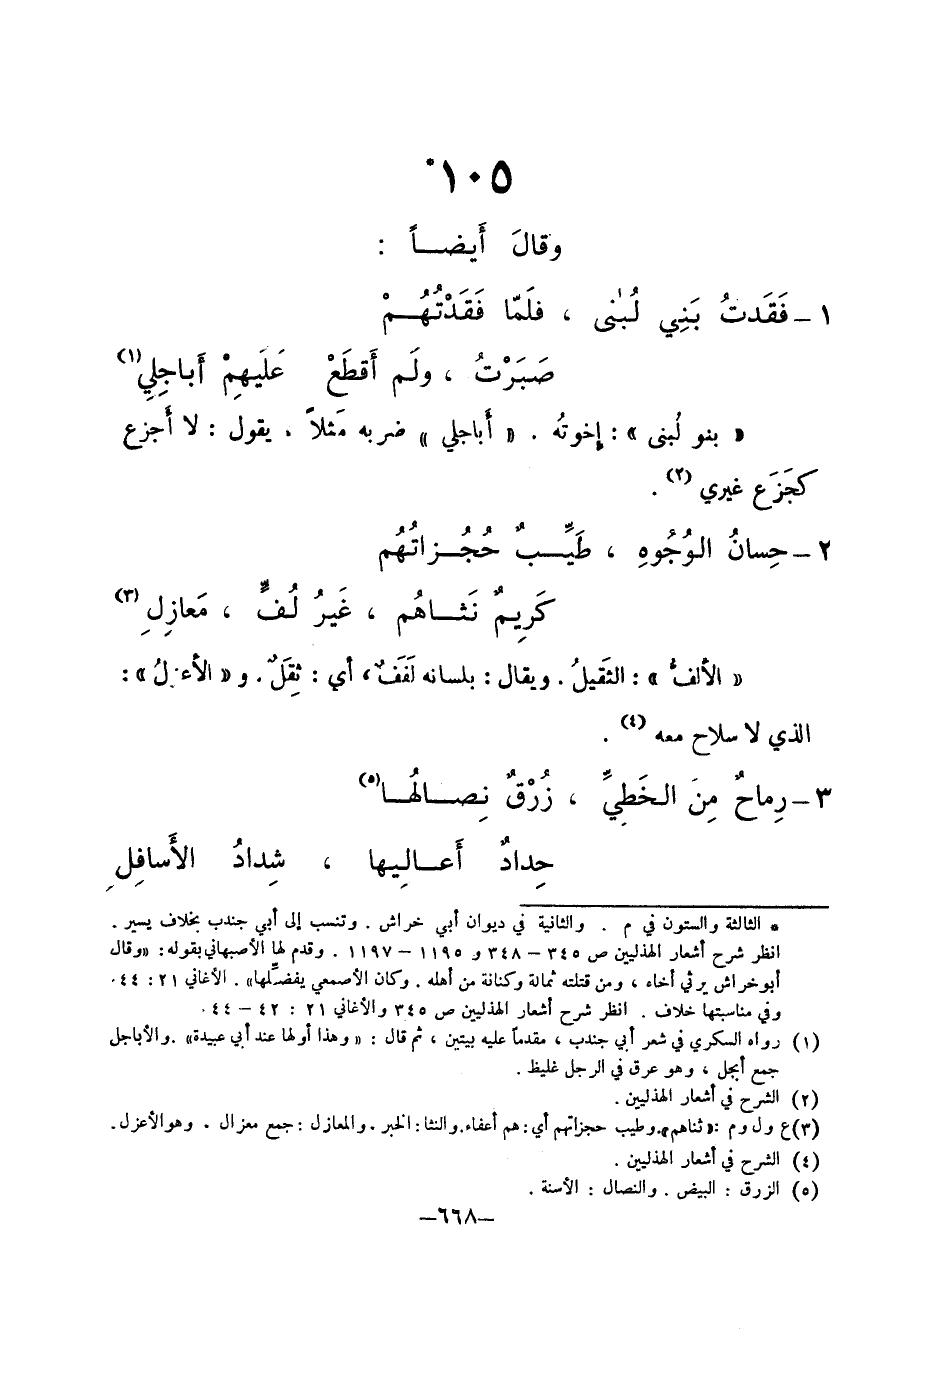 ١٠٥*
وقالَ أَيضـــاً :
١ – فَقَدتُ بَنِي لُبْنٰى ، فلَمّا فَقَدْتُهُــمْ
صَبَرْتُ ، ولَم أَقطَعْ عَلَيهِمْ أَباجِلِي(١)
« بنو لُبنى » : إخوتُه . « أَباجلي » ضربه مَثلاً . يقول : لا أَجزع
كجَزَع غيري (٢) .
٢ – حِسانُ الوُجُوهِ ، طَيِّــبٌ حُجُـزاتُهُم
كَرِيمٌ نَثــاهُم ، غَيرُ لُفٍّ ، مَعازِلِ (٣)
« الألفُّ » : الثقيلُ . ويقال : بلسانه لَفَفٌ ، أي : ثِقَلٌ . و « الأعزلُ » :
الذي لا سلاح معه (٤) .
٣ – رِماحٌ مِنَ الخَطِيِّ ، زُرْقٌ نِصــالُهــا(٥)
حِدادٌ أَعــالِيها ، شِدادُ الأَسافِلِ
* الثالثة والستون في م . والثانية في ديوان أبي خراش . وتنسب إلى أبي جندب بخلاف يسير .
انظر شرح أشعار الهذليين ص ٣٤٥ – ٣٤٨ و ١١٩٥ – ١١٩٧ . وقدم لها الأصبهاني بقوله : «وقال
أبو خراش يرثي أخاه ، ومن قتلته ثمالة وكنانة من أهله . وكان الأصمعي يفضّلها» . الأغاني ٢١ : ٤٤ .
وفي مناسبتها خلاف . انظر شرح أشعار الهذليين ص ٣٤٥ والأغاني ٢١ : ٤٢ – ٤٤ .
(١) رواه السكري في شعر أبي جندب ، مقدماً عليه بيتين ، ثم قال : « وهذا أولها عند أبي عبيدة» . والأباجل
جمع أبجل ، وهو عرق في الرجل غليظ .
(٢) الشرح في أشعار الهذليين .
(٣) ع ول وم : « ثناهم » . وطيب حجزاتهم أي : هم أعفاء . والنثا : الخبر . والمعازل : جمع معزال . وهو الأعزل .
(٤) الشرح في أشعار الهذليين .
(٥) الزرق : البيض . والنصال : الأسنة .
–٦٦٨–